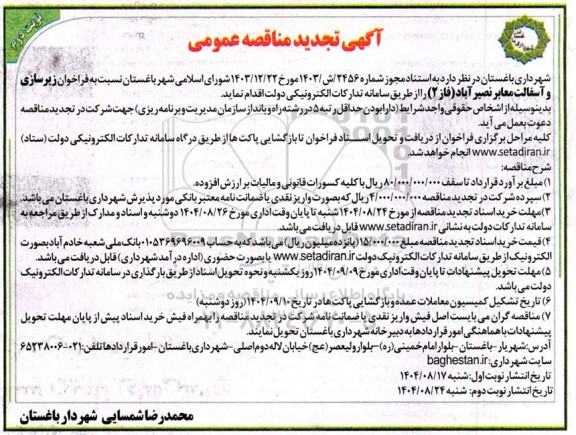 نوبت دوم
آگهی تجدید مناقصه عمومی
شهرداری باغستان در نظر دارد به استناد مجوز شماره ۲۴۵۶/ش/۱۴۰۳ مورخ ۱۴۰۳/۱۲/۲۲ شورای اسلامی شهر باغستان نسبت به فراخوان زیرسازی
و آسفالت معابر نصیرآباد (فاز ۲) را از طریق سامانه تدارکات الکترونیکی دولت اقدام نماید.
بدینوسیله از اشخاص حقوقی واجد شرایط (دارا بودن حداقل رتبه ۵ در رشته راه و باند از سازمان مدیریت و برنامه ریزی) جهت شرکت در تجدید مناقصه
دعوت بعمل می آید.
کلیه مراحل برگزاری فراخوان از دریافت و تحویل اسناد فراخوان تا بازگشایی پاکت ها از طریق درگاه سامانه تدارکات الکترونیکی دولت (ستاد)
www.setadiran.ir انجام خواهد شد.
شرح مناقصه:
۱) مبلغ برآورد قرارداد تا سقف ۸۰/۰۰۰/۰۰۰/۰۰۰ ریال با کلیه کسورات قانونی و مالیات بر ارزش افزوده.
۲) سپرده شرکت در تجدید مناقصه ۴/۰۰۰/۰۰۰/۰۰۰ ریال که بصورت واریز نقدی یا ضمانت نامه معتبر بانکی مورد پذیرش شهرداری باغستان می باشد.
۳) مهلت خرید اسناد تجدید مناقصه از مورخ ۱۴۰۴/۰۸/۲۴ شنبه تا پایان وقت اداری مورخ ۱۴۰۴/۰۸/۲۶ دوشنبه و اسناد و مدارک از طریق مراجعه به
سامانه تدارکات دولت به نشانی www.setadiran.ir قابل دریافت می باشد.
۴) قیمت خرید اسناد تجدید مناقصه مبلغ ۱۵/۰۰۰/۰۰۰ (پانزده میلیون ریال) می باشد که به حساب ۰۱۰۵۳۶۹۶۹۶۰۰۹ بانک ملی شعبه خادم آباد بصورت
الکترونیک از طریق سامانه تدارکات الکترونیک دولت www.setadiran.ir یا بصورت حضوری (اداره درآمد شهرداری) قابل دریافت می باشد.
۵) مهلت تحویل پیشنهادات تا پایان وقت اداری مورخ ۱۴۰۴/۰۹/۰۹ روز یکشنبه و نحوه تحویل اسناد از طریق بارگذاری در سامانه تدارکات الکترونیک
دولت می باشد.
۶) تاریخ تشکیل کمیسیون معاملات عمده و بازگشایی پاکت ها در تاریخ ۱۴۰۴/۰۹/۱۰ (روز دوشنبه)
۷) مناقصه گران می بایست اصل فیش واریز نقدی یا ضمانت نامه شرکت در تجدید مناقصه را بهمراه فیش خرید اسناد پیش از پایان مهلت تحویل
پیشنهادات با هماهنگی امور قراردادها به دبیرخانه شهرداری باغستان تحویل نمایند.
آدرس: شهریار-باغستان-بلوار امام خمینی (ره)-بلوار ولیعصر (عج) خیابان لاله دوم اصلی-شهرداری باغستان-امور قراردادها تلفن: ۰۲۱-۶۵۲۳۸۰۰۶
سایت شهرداری: baghestan.ir
تاریخ انتشار نوبت اول: شنبه ۱۴۰۴/۰۸/۱۷
تاریخ انتشار نوبت دوم: شنبه ۱۴۰۴/۰۸/۲۴
محمدرضا شمسایی شهردار باغستان